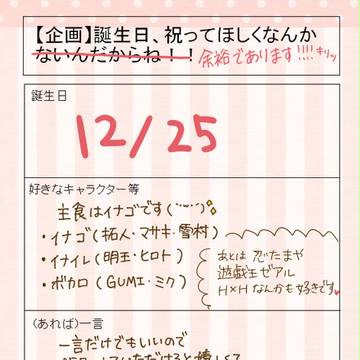 【企画】誕生日、祝ってほしくなんか
ないんだからね！！余裕であります!!!!キリッ
誕生日
12/25
好きなキャラクター等
主食はイナゴです
・イナゴ(拓人・マサキ・雪村)
・イナイレ(明王・ヒロト)
・ボカロ(GUMI・ミク)
あとは 忍たまや
遊戯王ゼアル
H×Hなんかも好きです
(あれば)一言
一言だけでもいいので